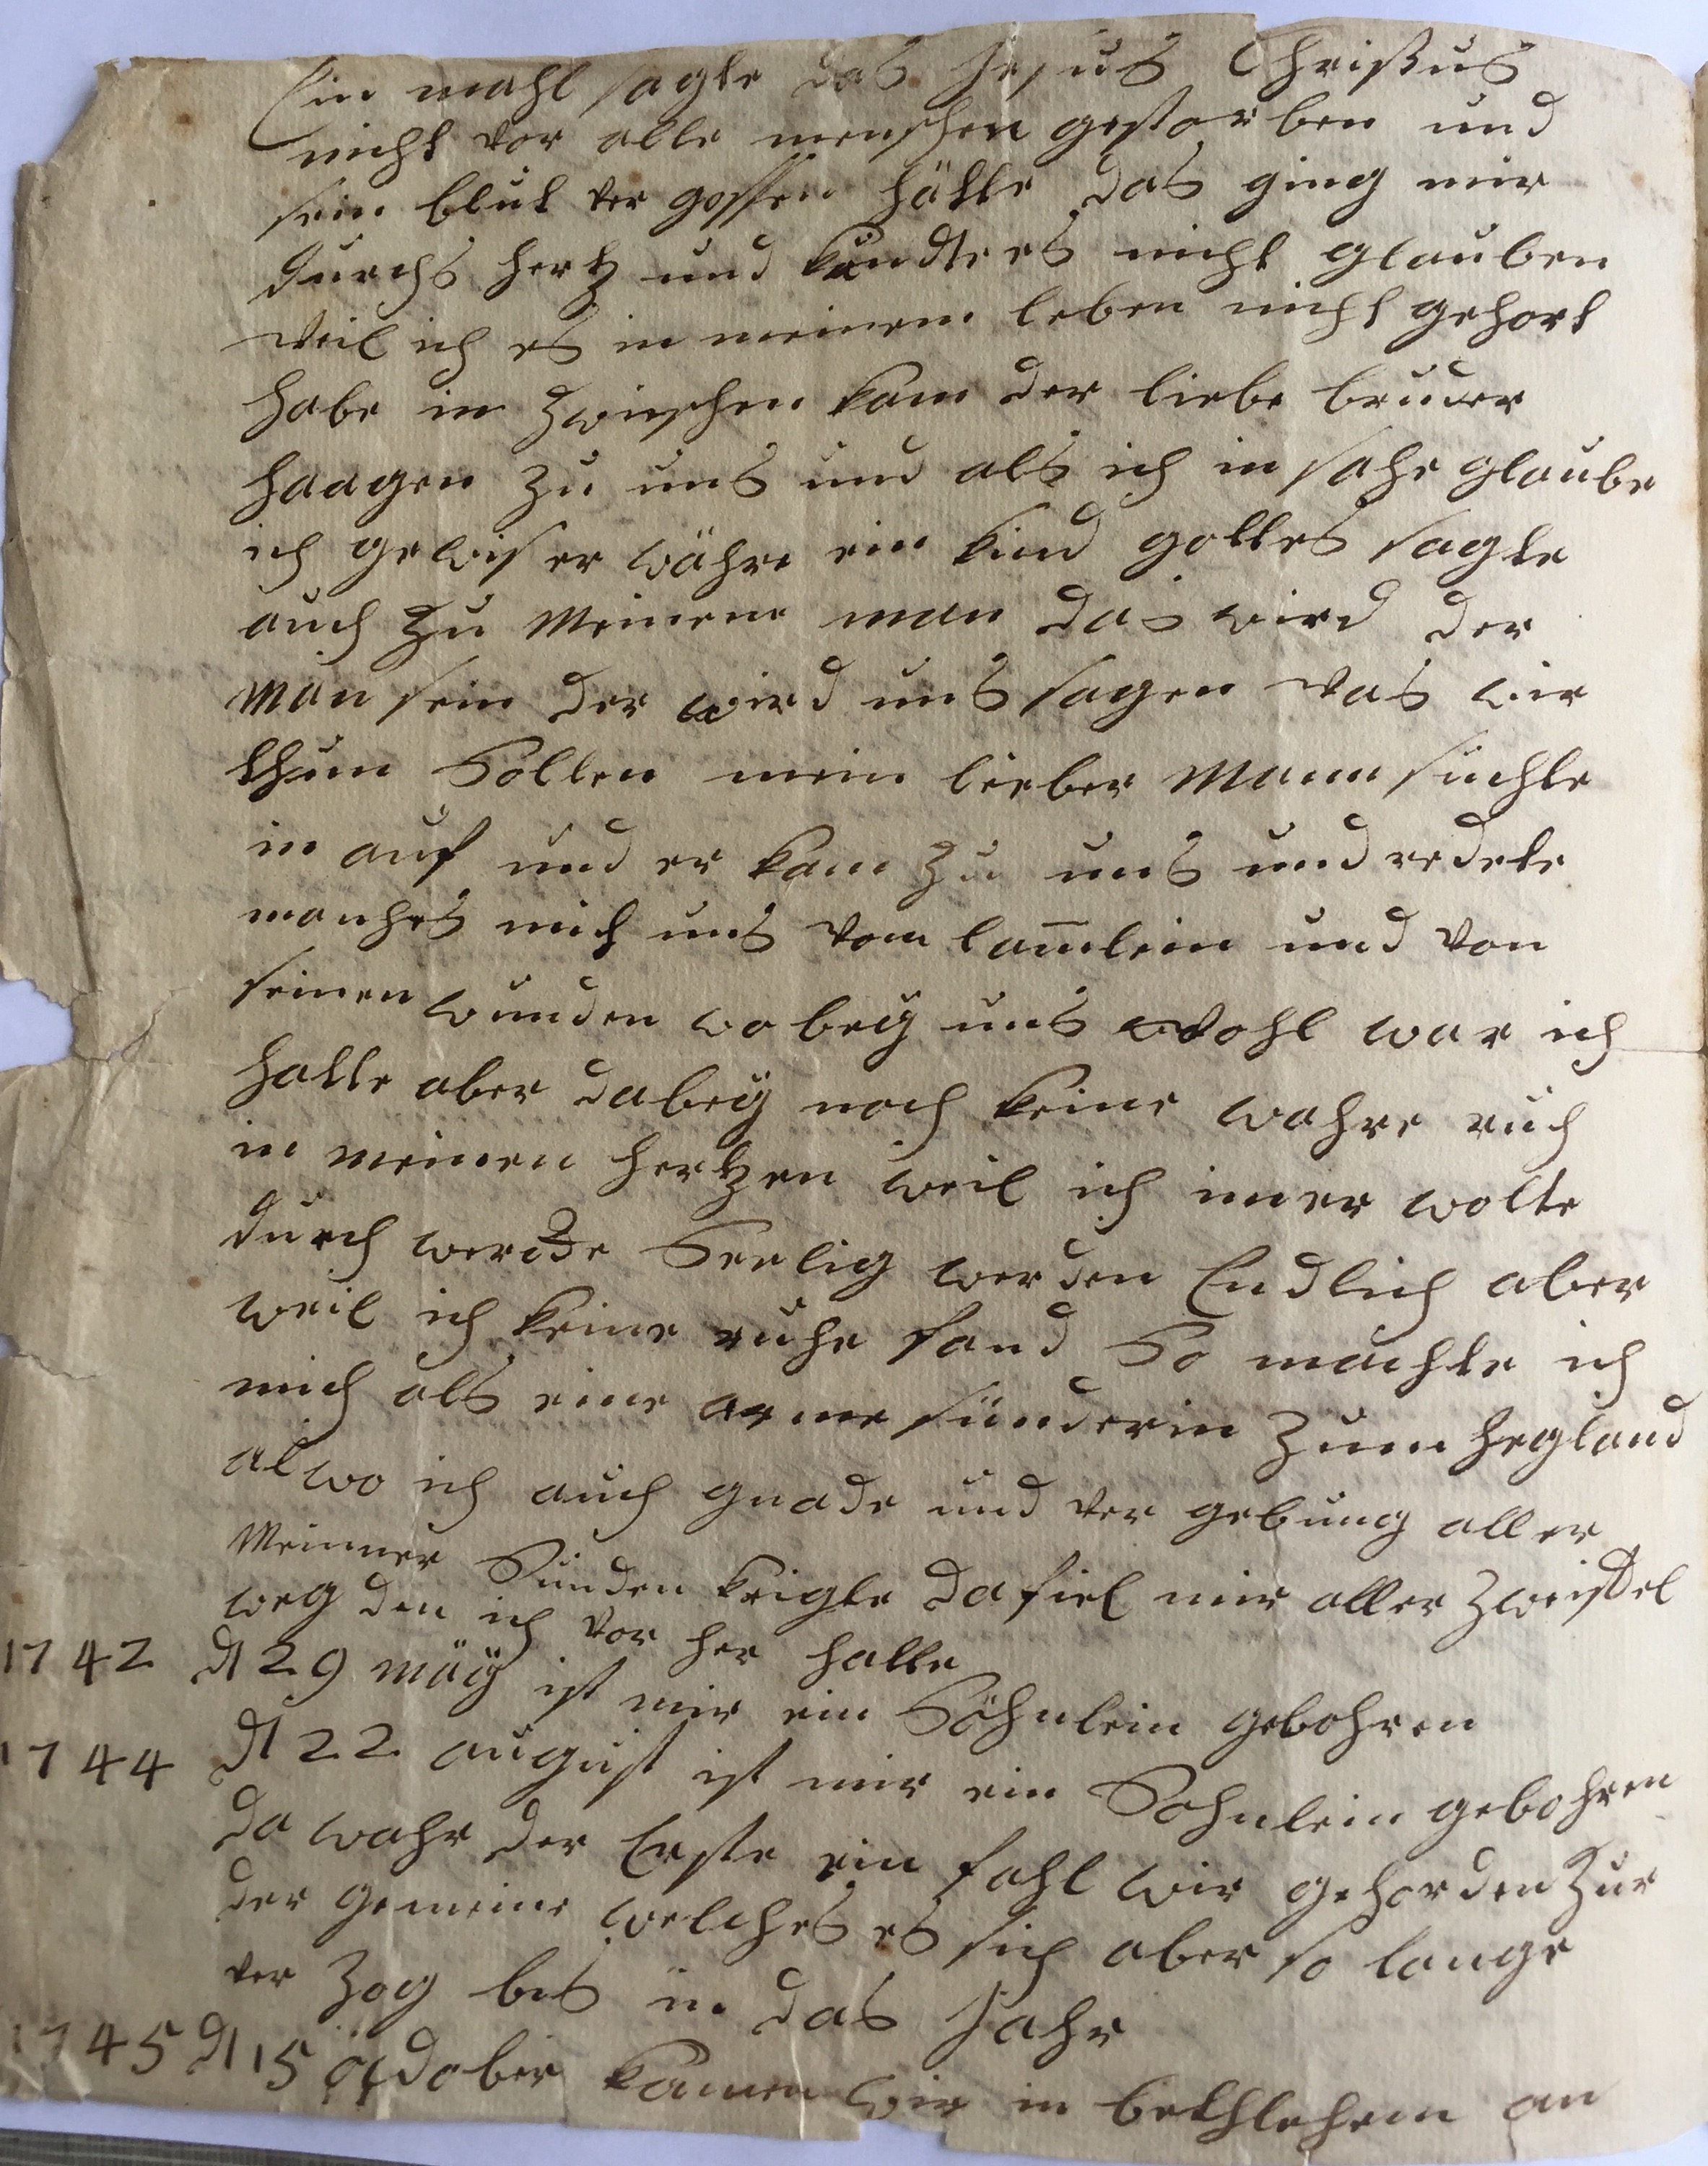 Ein mahl sagte das Jesus Christus
nicht vor alle menschen gestorben und
sein blut ver gossen hätte das ging mir
durchs hertz und kundte es nicht glauben
weil ich es in meinem leben nicht gehort
habe in zwischen kam der liebe bruder
haagen zu uns und als ich in sahe glaube
ich gewis er währe ein kind gottes sagte
auch zu meinene man das wird der
man sein der wird uns sagen was wir
thun Sollen mein lieber Mann suchte
in auf und er kam zu uns und redete
manches mit uns vom lam̄lein und von
seinen wunden wo beÿ uns wohl war ich
hatte aber dabeÿ noch keine wahre ruh
in meinen hertzen weil ich imer wolte
durch wercke Seelig werden Endlich aber
weil ich keine ruhe fand So machte ich
mich als eine arme sünderin zum heyland
alwo ich auch gnade und ver gebung aller
Meinner Sünden krigte da fiel mir aller zweiffel
weg den ich vor her hatte
1742 d 29 maÿ ist mir ein Söhnlein gebohren
1744 d 22 august ist mir ein Sohnlein gebohren
da wahr der Erste ein fahl wir gehorden zur
der gemeine welches es sich aber so lange
ver zog bis in das Jahr
1745 d 15 ocdober kamen wir in bethlehem an